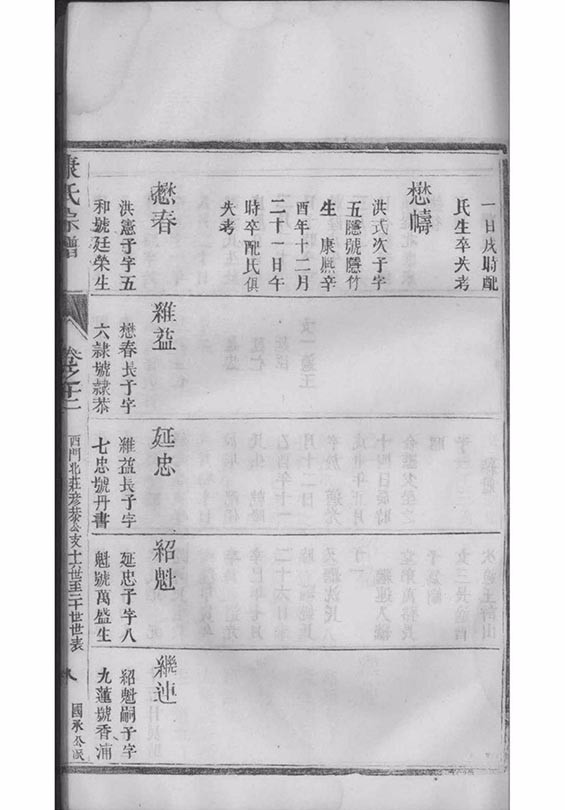 一日戌時配
氏生卒失考
懋幬
洪式次子字
五隱號隱竹
生康熙辛
酉年十二月
二十一日午
時卒配氏俱
失考
懋春
洪憲子字五
和號廷榮生
維益
懋春長子字
六隷號隷恭
延忠
維益長子字
七忠號丹書
紹魁
延忠子字八
魁號萬盛生
繼連
紹魁嗣子字
九蓮號香浦
康氏宗譜
西門北莊彥恭公支十一世至二十世世表
八
國承公派